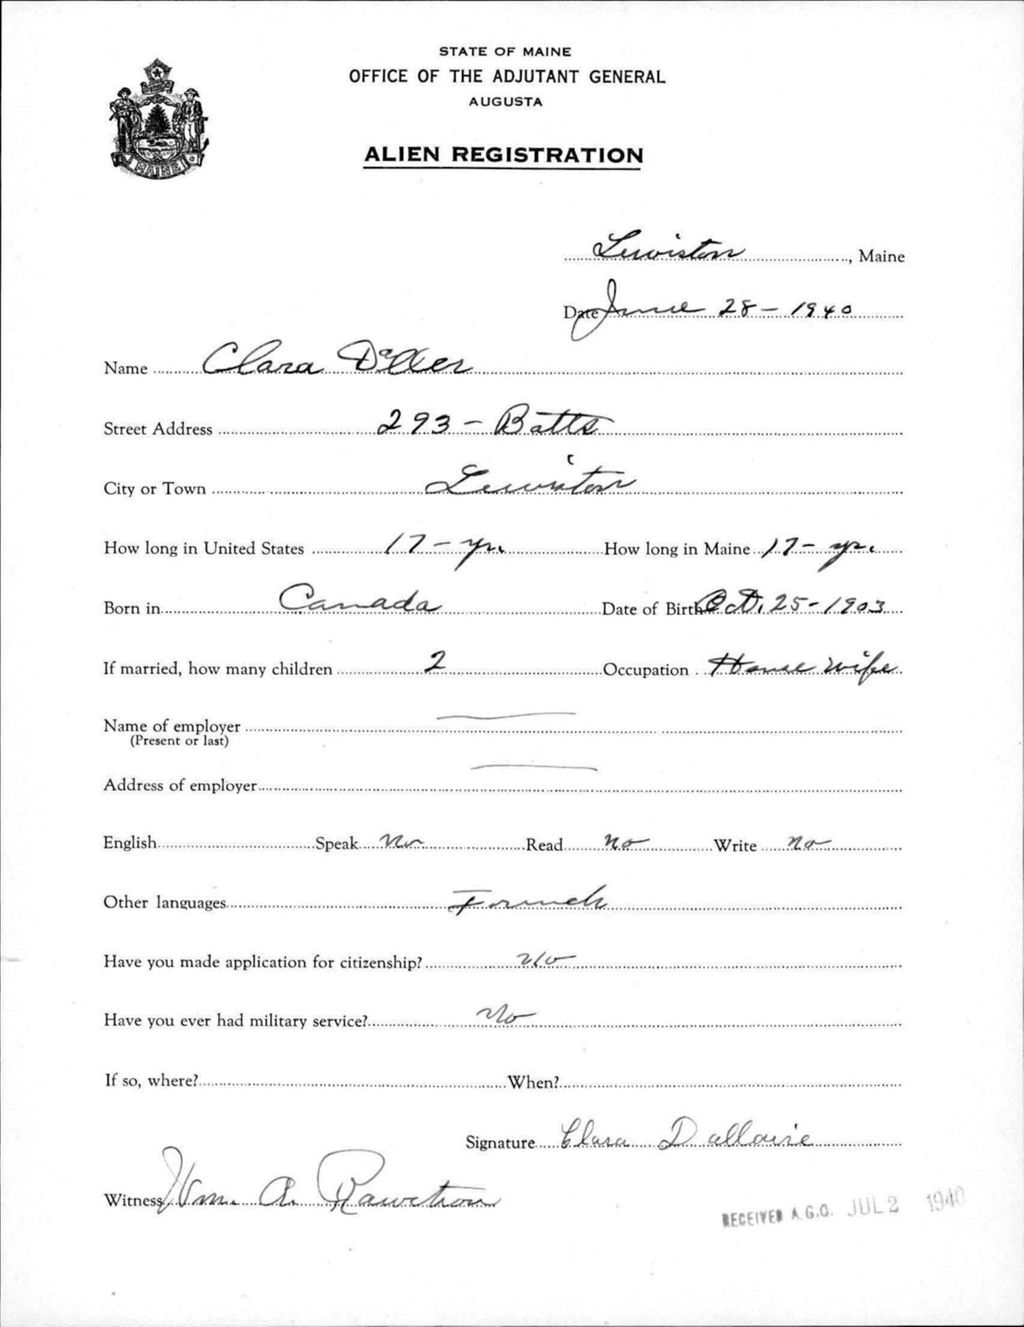 STATE OF MAINE
OFFICE OF THE ADJUTANT GENERAL
AUGUSTA
ALIEN REGISTRATION
MAINE
Lewiston, Maine
Date June 28 - 1940
Name Clara Doller
Street Address 293 - Batts
City or Town Lewiston
How long in United States 17 - yr. How long in Maine 17 - yr.
Born in Canada Date of Birth Oct. 25 - 1903
If married, how many children 2 Occupation House wife
Name of employer
(Present or last)
Address of employer
English Speak No Read No Write No
Other languages French
Have you made application for citizenship? No
Have you ever had military service? No
If so, where? When?
Signature Clara Dallaire
Witness Wm. A.
RECEIVED A.G.O. JUL 2 1940